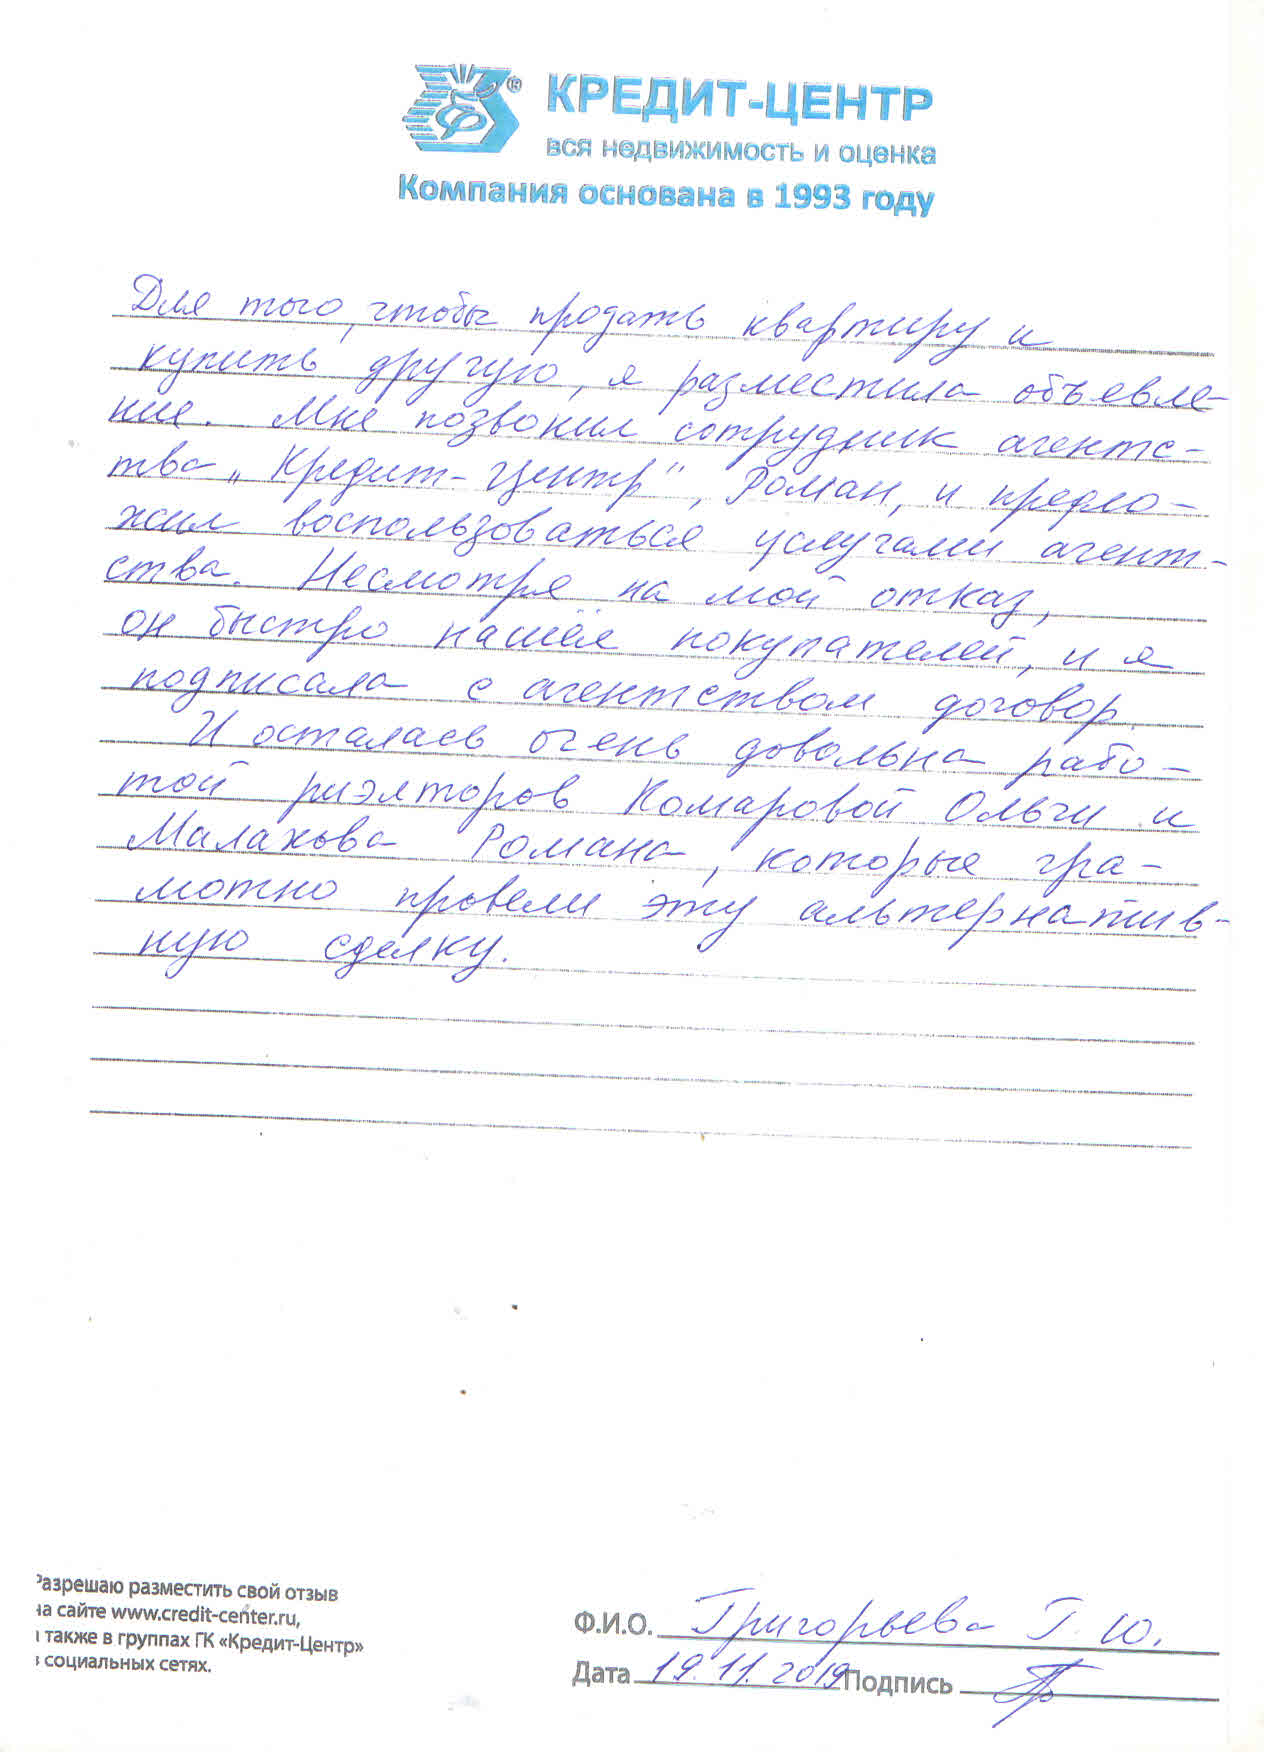 КРЕДИТ-ЦЕНТР
вся недвижимость и оценка
Компания основана в 1993 году
Для того, чтобы продать квартиру и
купить другую, я разместила объевле-
ние. Мне позвонил сотрудник агентс-
тва „Кредит-Центр", Роман, и предло-
жил воспользоваться услугами агент-
ства. Несмотря на мой отказ,
он быстро нашёл покупателей, и я
подписала с агентством договор.
И осталась очень довольна рабо-
той риэлторов Комаровой Ольги и
Малахова Романа, которые гра-
мотно провели эту альтернатив-
ную сделку.
Разрешаю разместить свой отзыв
на сайте www.credit-center.ru,
а также в группах ГК «Кредит-Центр»
в социальных сетях.
Ф.И.О. Григорьева Г. Ю.
Дата 19.11.2019 Подпись